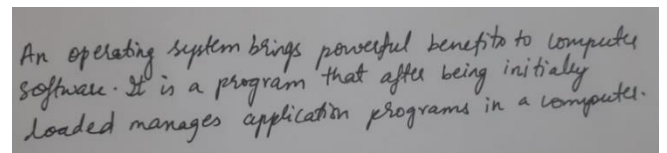 An operating system brings powerful benefits to computer
software. It is a program that after being initially
loaded manages application programs in a computer.